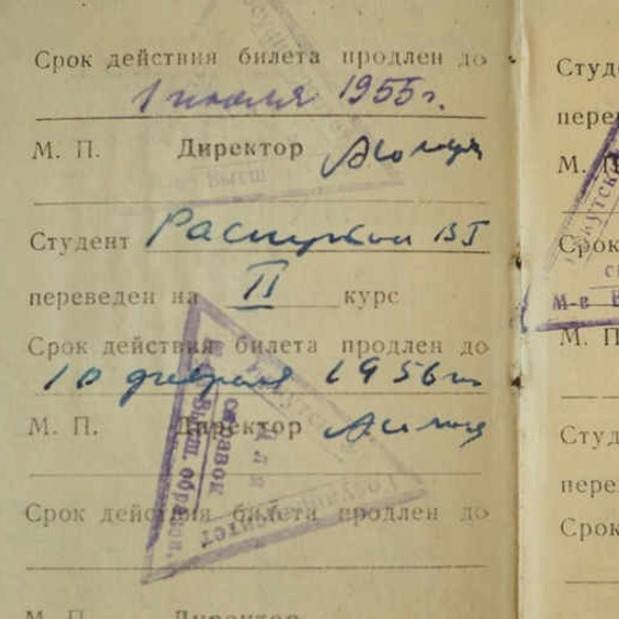 Срок действия билета продлен до
1 июля 1955 г.
М. П. Директор
Студент Распутин В Г
переведен на II курс
Срок действия билета продлен до
10 февраля 1956 г.
М. П. Директор
Срок действия билета продлен до
М. П. Директор
справок
Высш. образов.
Высш
Студ
пере
М. П
Срок
М-в
М. П
Студ
пере
Срок